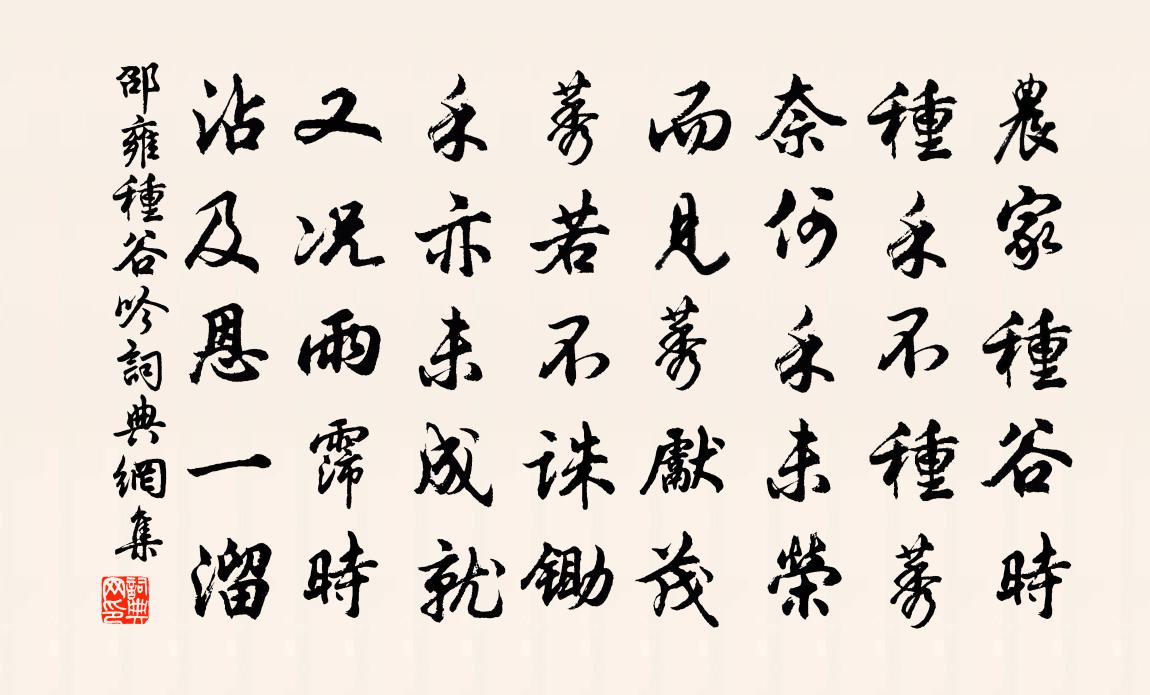 農家種谷時
種禾不種莠
奈何禾未榮
而見莠獻茂
莠若不誅鋤
禾亦未成就
又况雨霈時
沾及恩一溜
邵雍種谷吟詞典網集
詞典网印